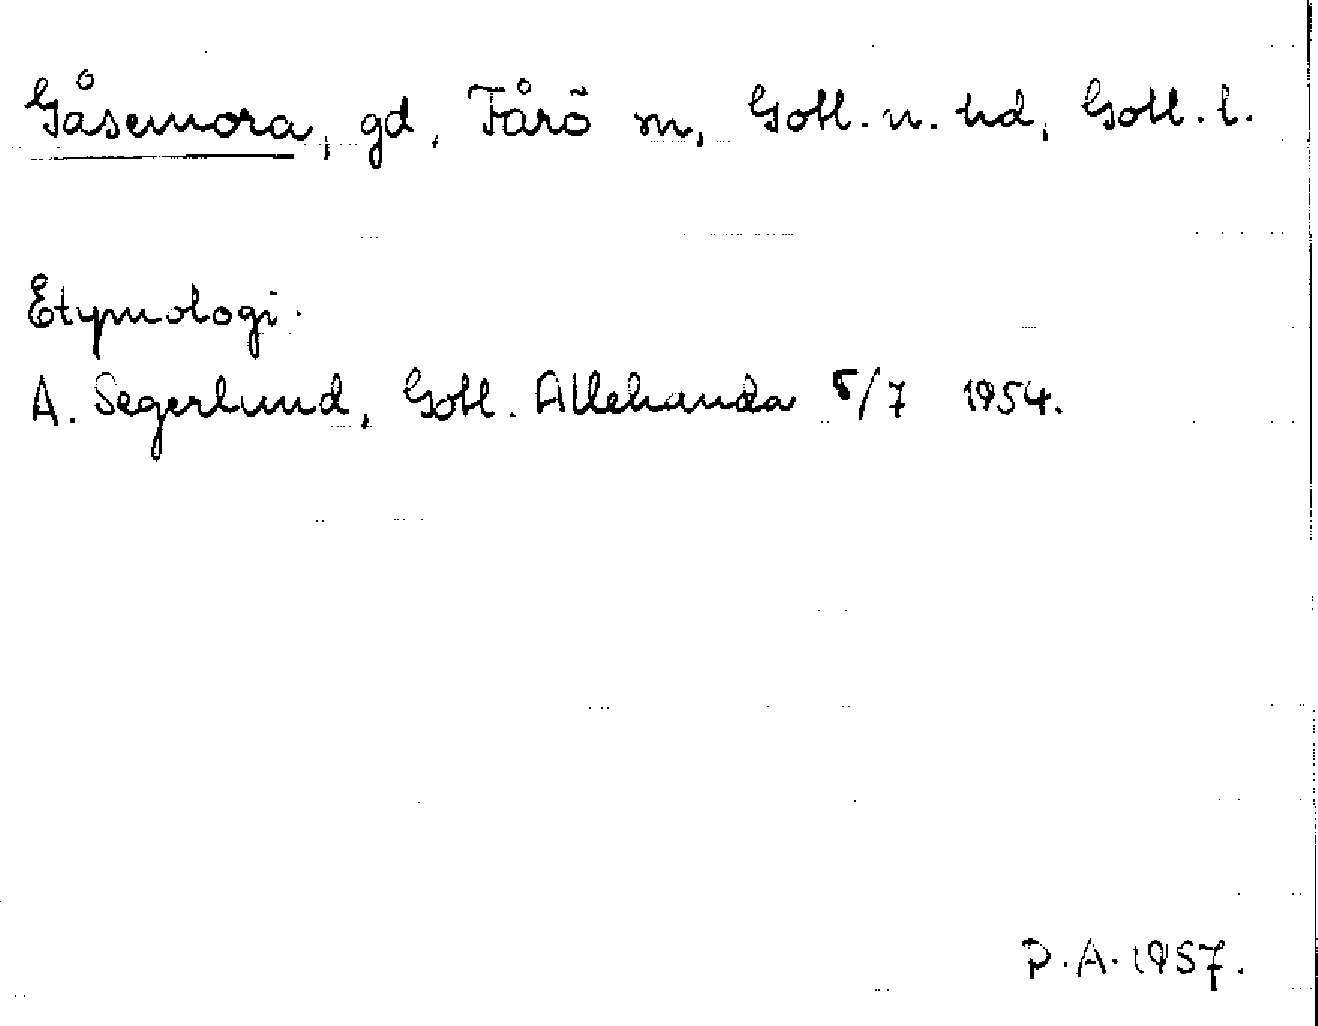 Gåsemora, gd, Fårö sn, Gotl. n. hd, Gotl. l.
Etymologi.
A. Segerlund, Gotl. Allehanda 5/7 1954.
P.A. 1957.